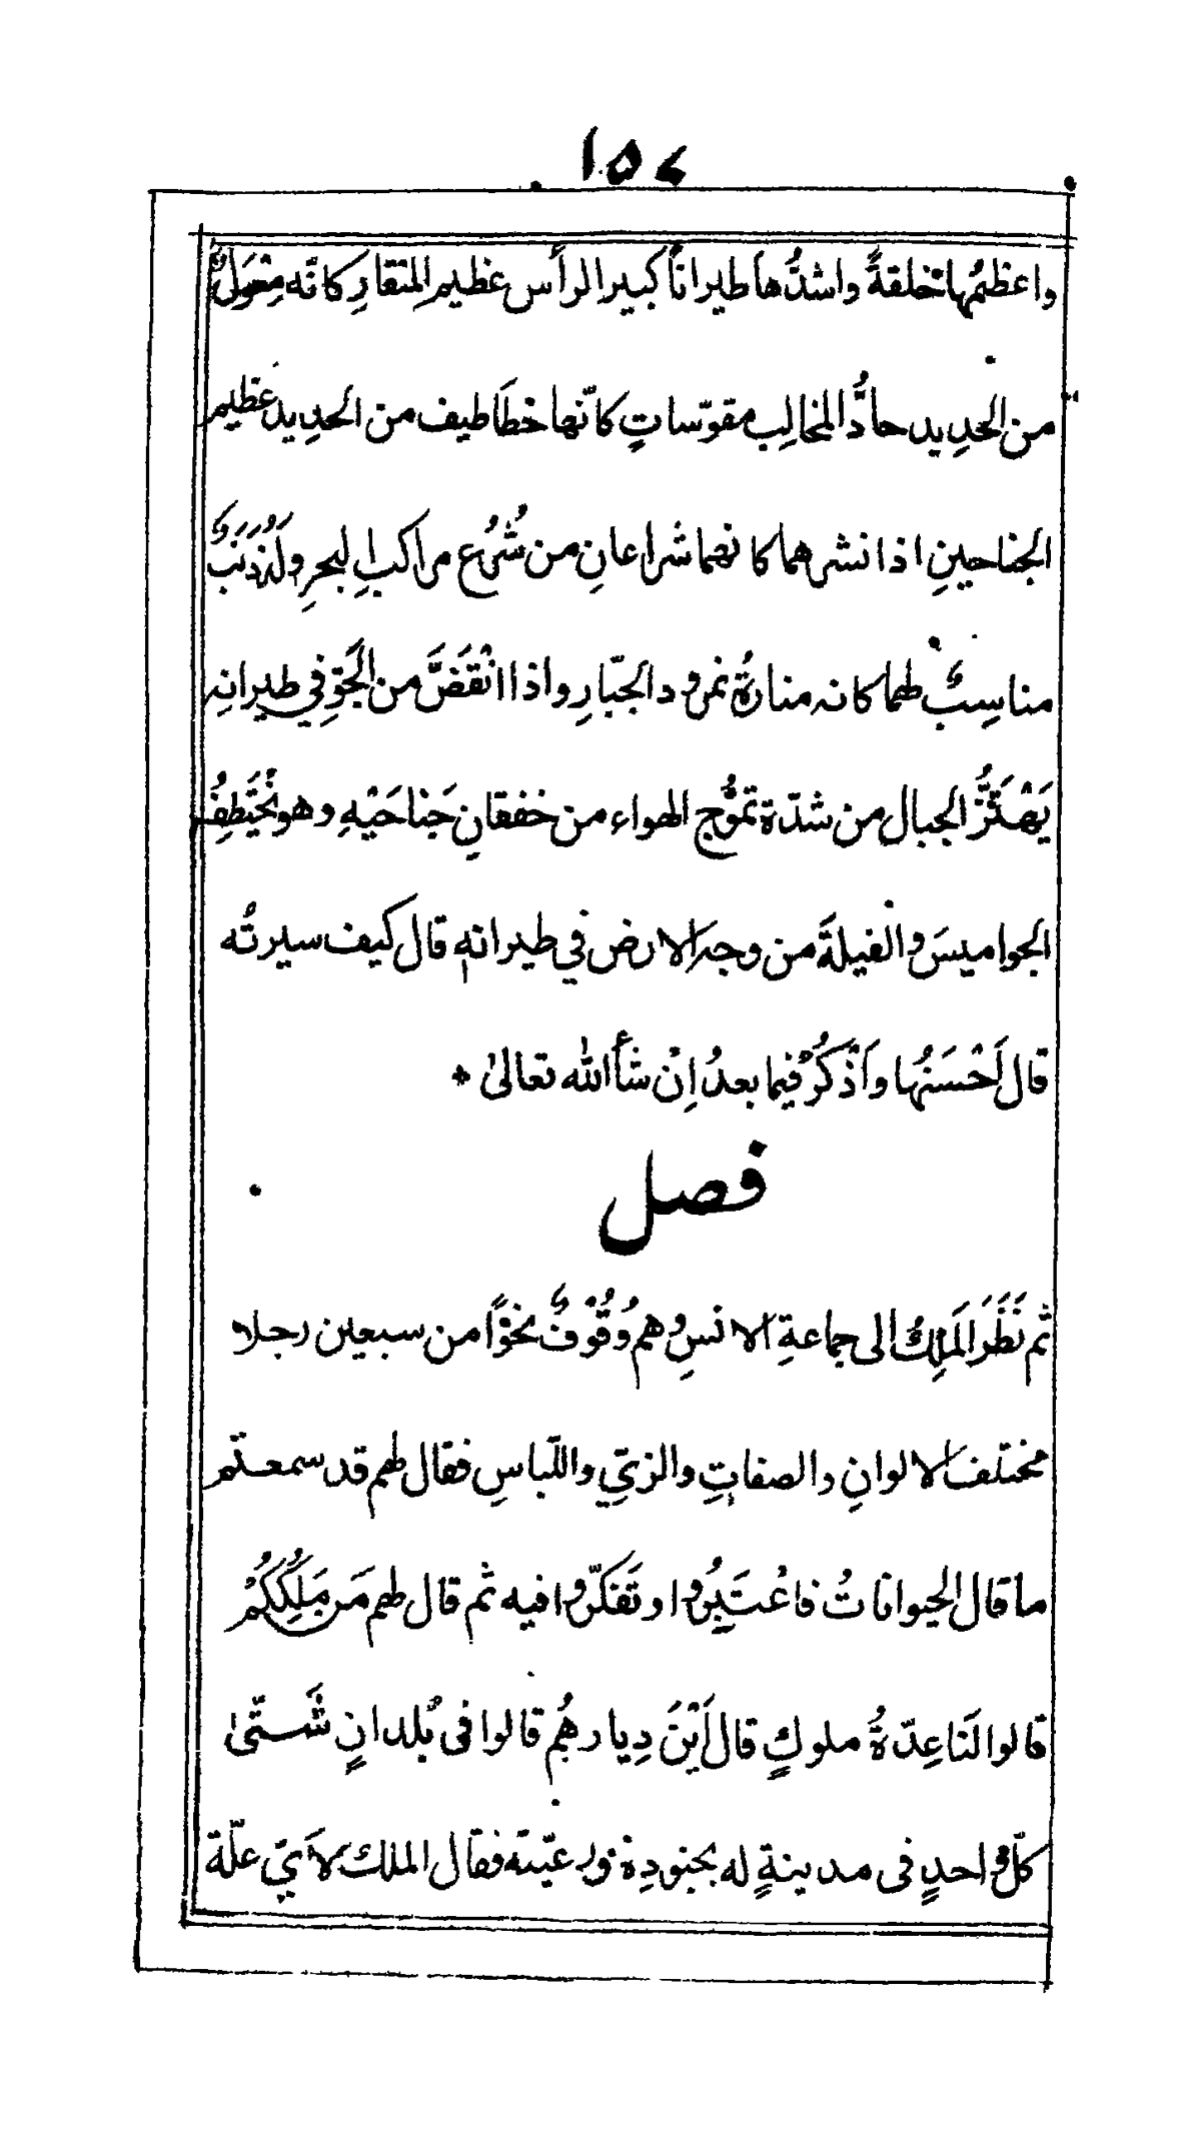 ١٥٧
واعظمُها خلقةً واشدُّها طيراناً كبير الرأس عظيم المنقارِ كانّه مِعْوَلٌ
من الحدِيد حادُّ المخالِب مقوّساتٍ كانّها خطَاطيف من الحدِيد عظيم
الجناحينِ اذا نشرهما كانهما شراعانِ من شُرُعِ مراكبِ البحرِ وله ذَنَبٌ
مناسِبٌ لهما كانه منارةُ نمرود الجبّارِ واذا انْقَضَّ من الجَوِّ في طيرانِه
يَهْتَزُّ الجبال من شدّة تموُّج الهواء من خفقانِ جَناحَيْهِ وهو يَخْتَطِفُ
الجواميسَ والفيلةَ من وجه الارض في طيرانهٖ قال كيف سيرتُه
قال اَحْسَنُها واَذْكُرُ فيما بعدُ اِنْ شأالله تعالىٰ ٭
فصل
ثم نَظَرَ المَلِكُ الى جماعةِ الانسِ وهم وُقُوْفٌ نحوًا من سبعين رجلا
مختلف الالوانِ والصفاتِ والزيِّ واللّباسِ فقال لهم قد سمعتم
ما قال الحيواناتُ فاعْتَبِرُوا وتَفَكّروا فيه ثم قال لهم مَن مَلِكُكُمْ
قالوا لَنا عِدّةُ ملوكٍ قال اَيْنَ دِيارهُم قالوا فى بُلدانٍ شَتّىٰ
كلّ واحدٍ فى مدينةٍ له بجنودِهٖ ورعيّته فقال الملك لاَيّ علّة